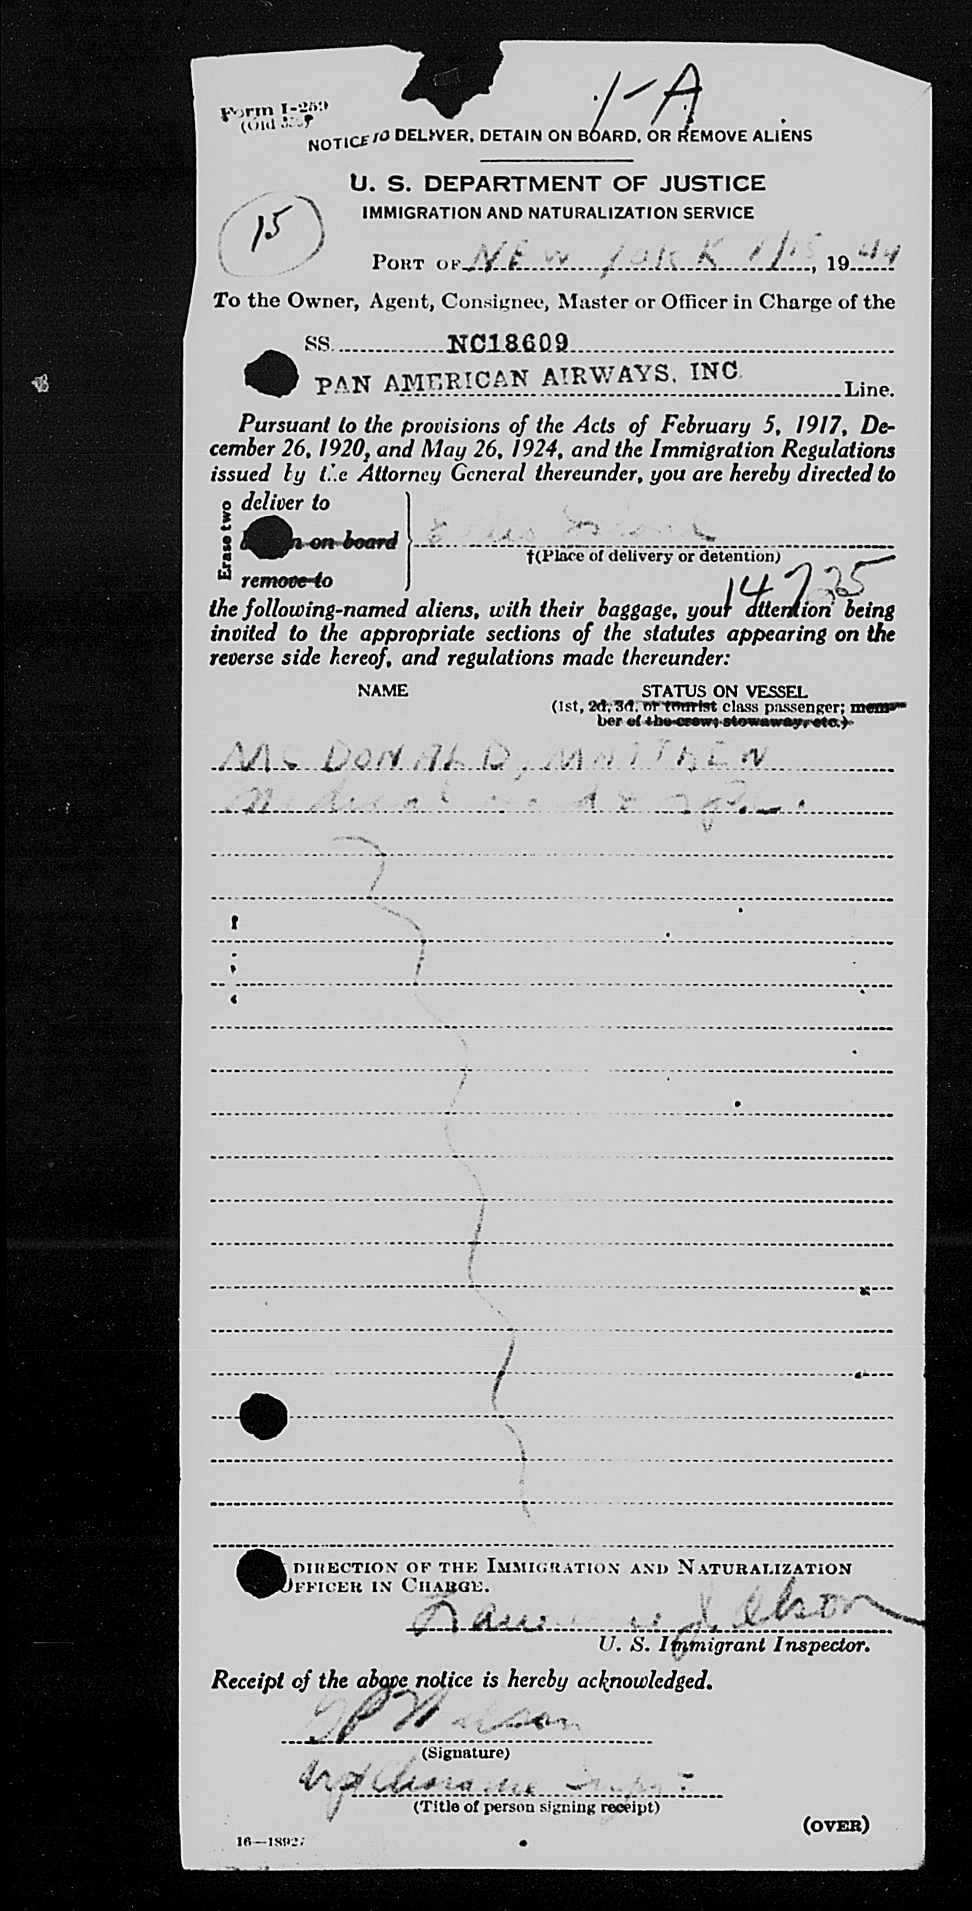 1-A
Form I-259
(Old
NOTICE TO DELIVER, DETAIN ON BOARD, OR REMOVE ALIENS
U. S. DEPARTMENT OF JUSTICE
IMMIGRATION AND NATURALIZATION SERVICE
15
PORT OF NEW YORK 1/15, 1944
To the Owner, Agent, Consignee, Master or Officer in Charge of the
SS. NC18609
PAN AMERICAN AIRWAYS, INC. Line.
Pursuant to the provisions of the Acts of February 5, 1917, De-
cember 26, 1920, and May 26, 1924, and the Immigration Regulations
issued by the Attorney General thereunder, you are hereby directed to
Erase two
deliver to
on board
Ellis Island
†(Place of delivery or detention)
remove to
14725
the following-named aliens, with their baggage, your attention being
invited to the appropriate sections of the statutes appearing on the
reverse side hereof, and regulations made thereunder:
NAME STATUS ON VESSEL
(1st, 2d, 3d, or tourist class passenger; mem-
ber of the crew; stowaway, etc.)
McDONALD, MATTHEW
Medical
DIRECTION OF THE IMMIGRATION AND NATURALIZATION
OFFICER IN CHARGE.
U. S. Immigrant Inspector.
Receipt of the above notice is hereby acknowledged.
(Signature)
(Title of person signing receipt)
(OVER)
16—18927